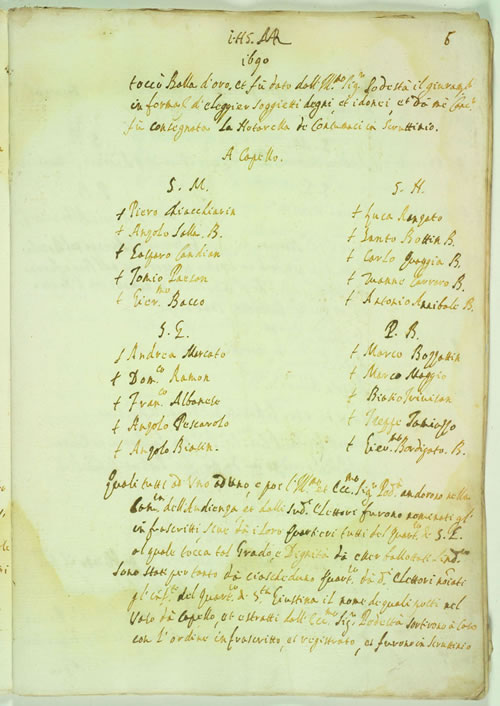 IHS. MR
6
1690
toccò Balla d'oro, et fù dato dall'Ill.mo Sig.r Podestà il giuram.to
in forma d'elegger Soggietti degni, et idonei, et da me Canc.r
fù consegnata la Notarella de Contumaci in Scrutinio.
A Capello.
S. M.
† Piero Chiacchiarin
† Angolo Salla. B.
† Gasparo Candian
† Tomio
† Gier.mo Bacco
S. H.
† Luca Rangato
† Santo Bottin B.
† Carlo Quaggia B.
† Zuanne Carraro B.
† Antonio Annibale B.
S. E.
† Andrea Mercato
† Dom.co Ramon
† Fran.co Albanese
† Angolo Pescarolo
† Angolo Biasin.
P. B.
† Marco Bozzattin
† Marco Maggio
† Biasio
† Iseppe
† Gier.mo Bordigato. B.
Quali tutti ad uno ad uno, e poi l'Ill.mo et Ecc.mo Sig.r Pod.à andorono nella
Cam.a dell'Audienza et dalli sud.i Elettori furono nominati gl'
infrascritti due da i loro Quartieri tutti del Quart.r di S. E.
al quale tocca tal Grado, e Dignità da esser ballotati
Sono stati pertanto da ciascheduno Quart.r da d.i Elettori
gl'inf.ti del Quart.r di S.ta Giustina il nome de quali posti nel
Vaso da Capello, et estratti dall'Ecc.mo Sig.r Podestà sortirono
con l'ordine infrascritto, et registrato, et furono in Scrutinio